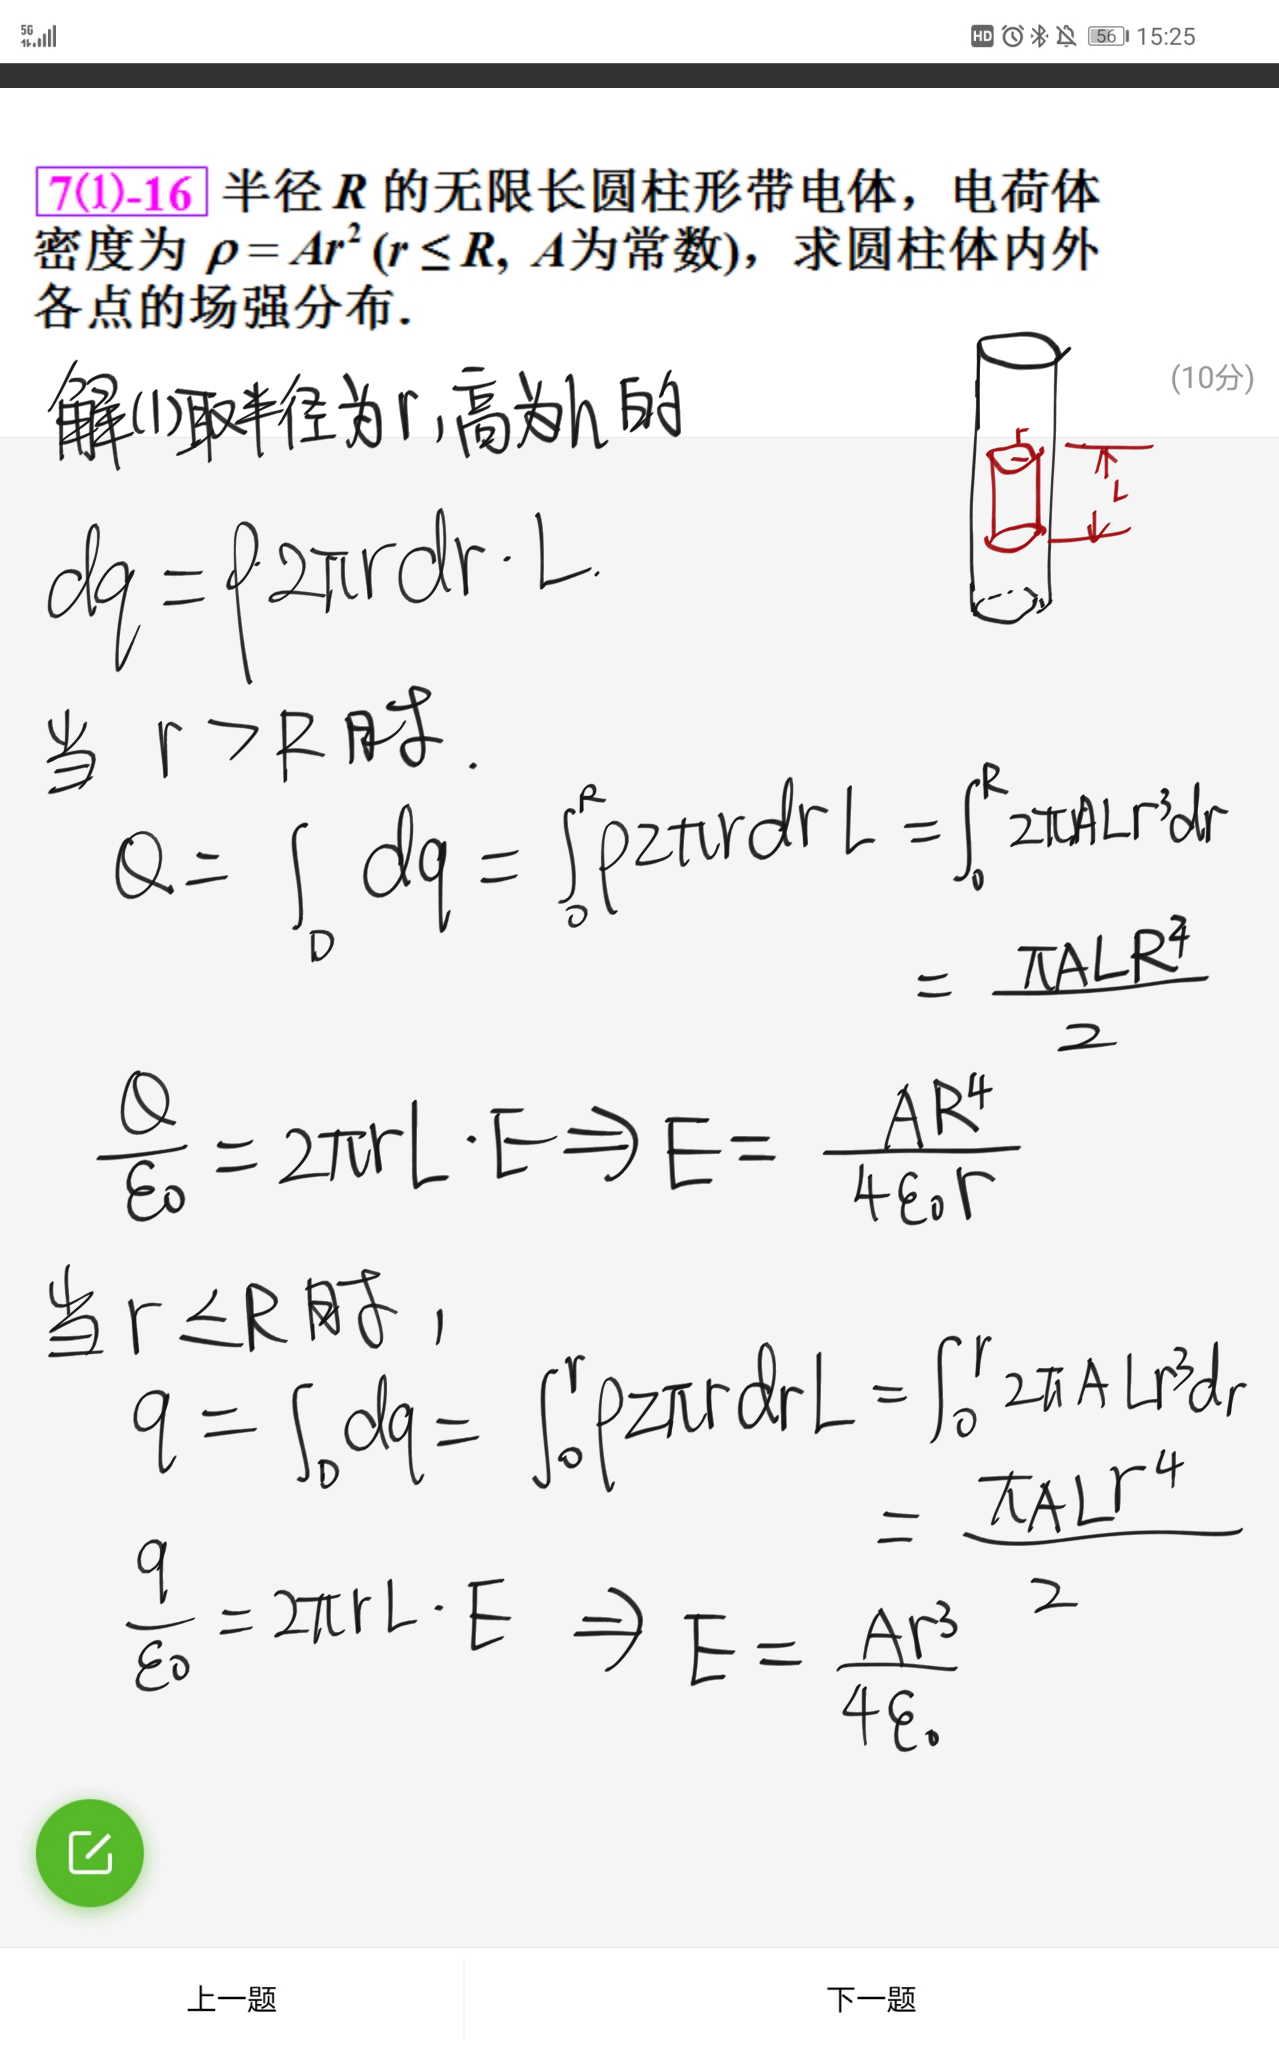 5G
HD 56 15:25
7(1)-16 半径 R 的无限长圆柱形带电体，电荷体
密度为 ρ = Ar² (r ≤ R, A为常数)，求圆柱体内外
各点的场强分布.
(10分)
解(1)取半径为r,高为h的
r
L
dq = ρ2πrdr·L.
当 r > R 时.
Q = ∫_D dq = ∫₀ᴿ ρ2πrdrL = ∫₀ᴿ 2πALr³dr
= πALR⁴/2
Q/ε₀ = 2πrL·E ⇒ E = AR⁴/4ε₀r
当 r ≤ R 时,
q = ∫_D dq = ∫₀ʳ ρ2πrdrL = ∫₀ʳ 2πALr³dr
= πALr⁴/2
q/ε₀ = 2πrL·E ⇒ E = Ar³/4ε₀
上一题 下一题